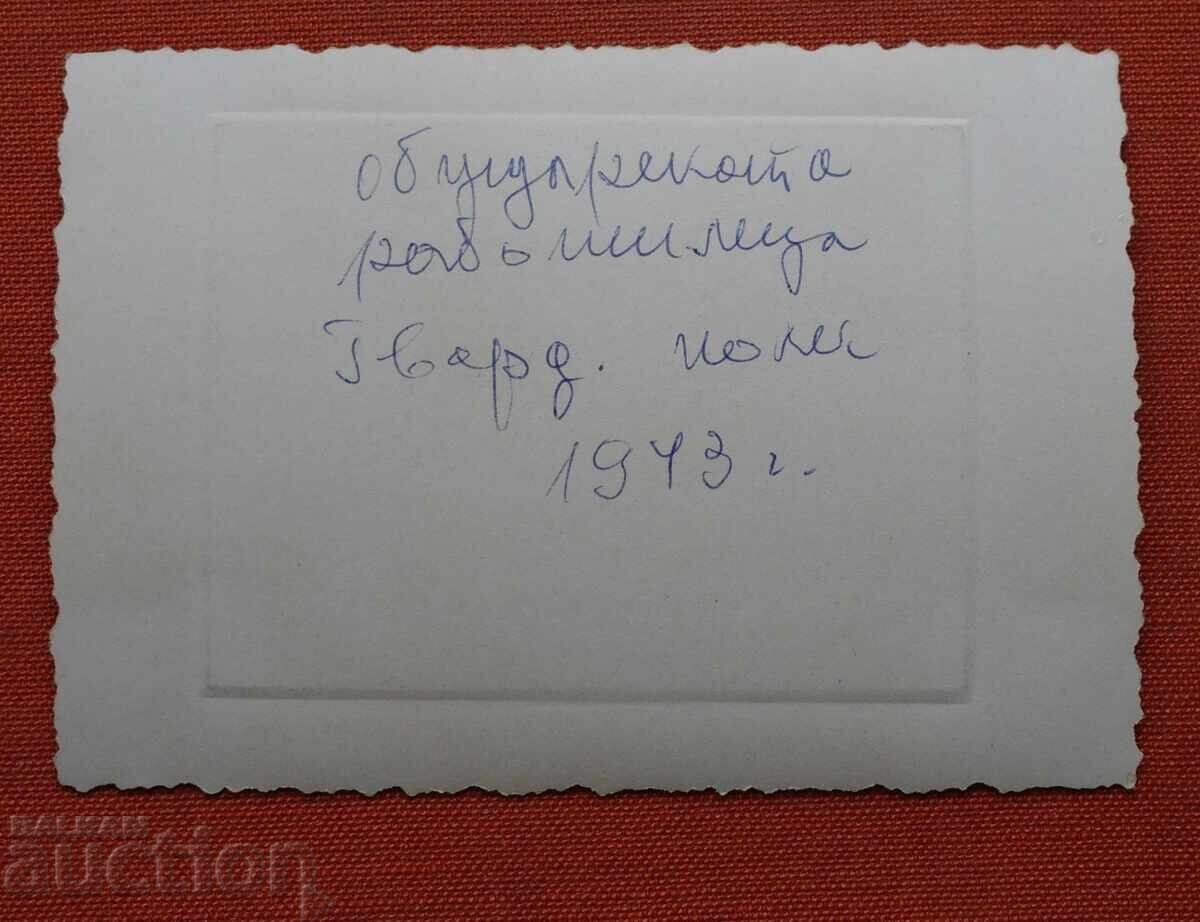 обущарската
работилница
Гвард. полк
1943 г.
BALKAN
auction